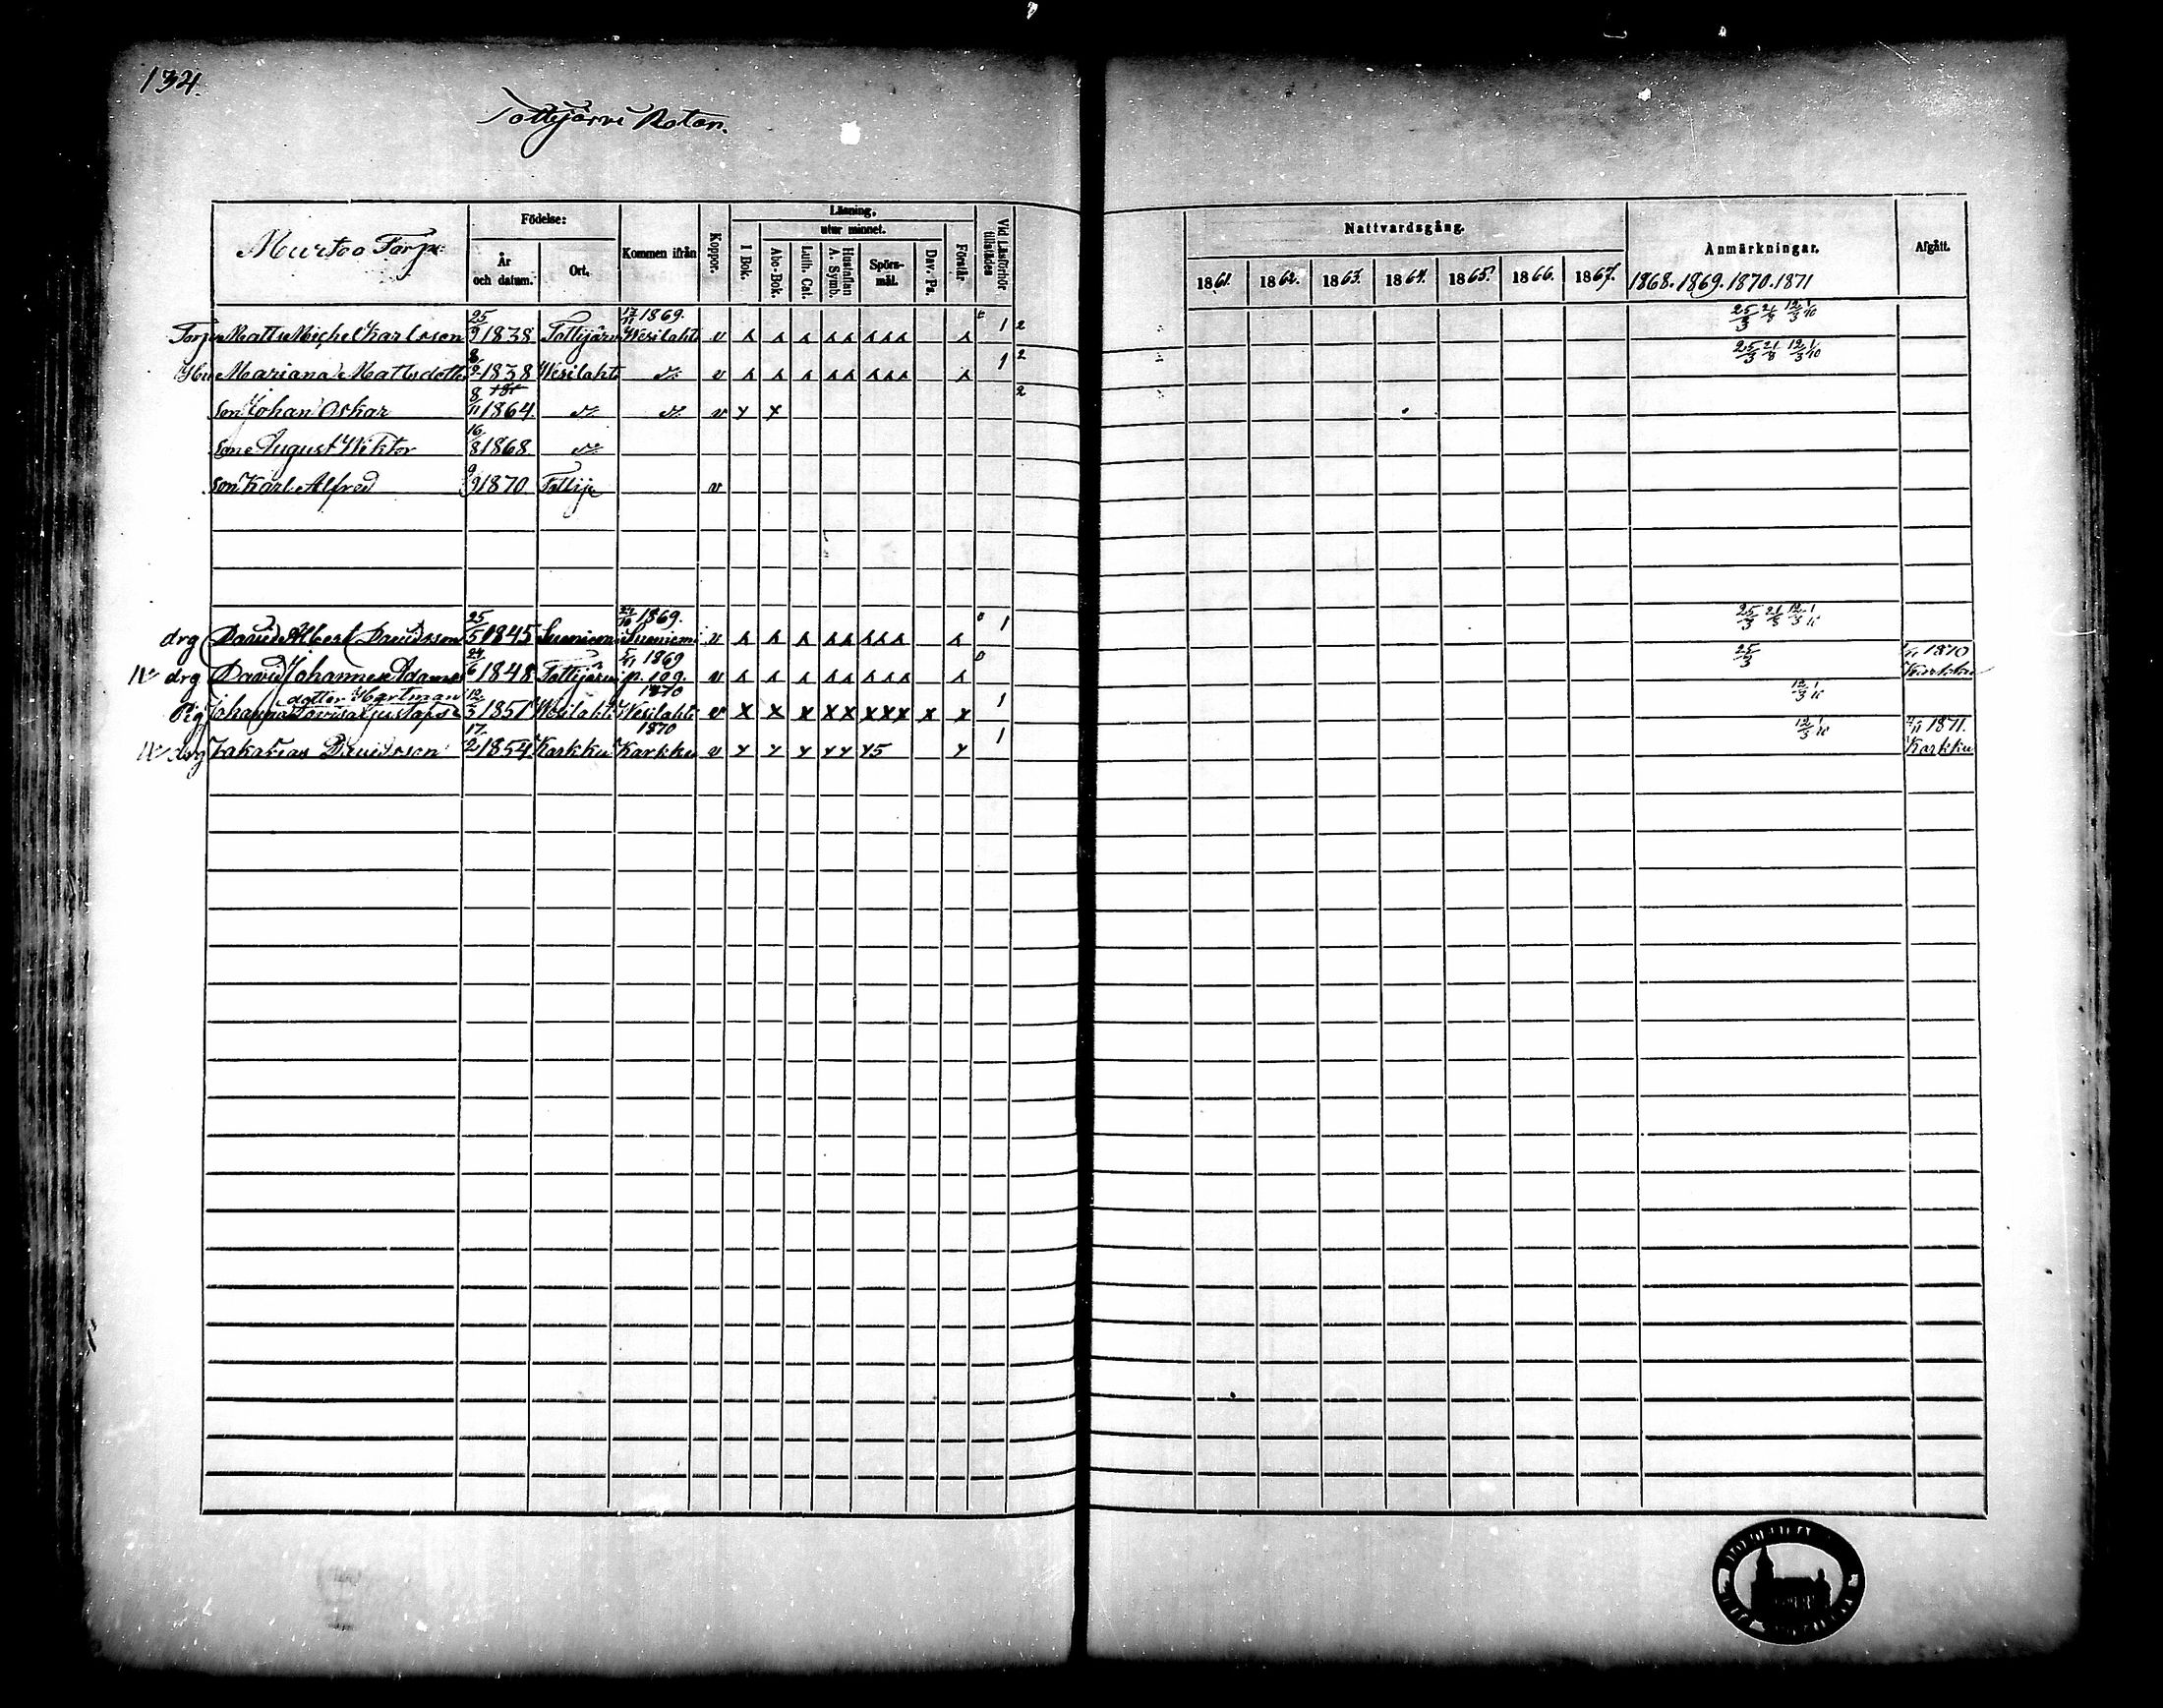 134.
Tottijärvi Rotan.
Murtoo Torp.
Födelse:
År och datum.
Ort.
Kommen ifrån
Koppor.
Läsning,
utur minnet.
I Bok.
Abc-Bok.
Luth. Cat.
Hustaflan A. Symb.
Spörs-mål.
Dav. Ps.
Förstår.
Vid Läsförhör tillstädes
Nattvardsgång.
1861. 1862. 1863. 1864. 1865. 1866. 1867.
Anmärkningar.
1868. 1869. 1870. 1871
Afgått.
Matts Michel Karlsson 25/9 1838 Tottijärvi 17/11 1869. Wesilahti v 1 2 25/3 21/3 12/3 1/10
Hu Mariana Mattsdotter 8/2 1838 Wesilahti do v 1 2 25/3 21/3 12/3 1/10
Son Johan Oskar 8/11 1864. do do v 2
Son August Wiktor 16/8 1868 do
Son Karl Alfred 9/9 1870 Tottije v
drg David Albert Davidsson 25/5 1845 Suoniemi 1869. Suoniemi v 1 25/3 21/3 12/3
drg David Johannes 24/6 1848 Tottijärvi 5/11 1869 p. 109. v 25/3 1870 Karkku
Pig Johanna Lovisa Gustafs dotter Hartman 12/3 1851 Wesilahti 1870 Wesilahti v x x x x x x x x x x 1 12/3 1/10
drg Zakarias Davidsson 17/2 1854. Karkku 1870 Karkku v 1 12/3 1/10 1871. Karkku